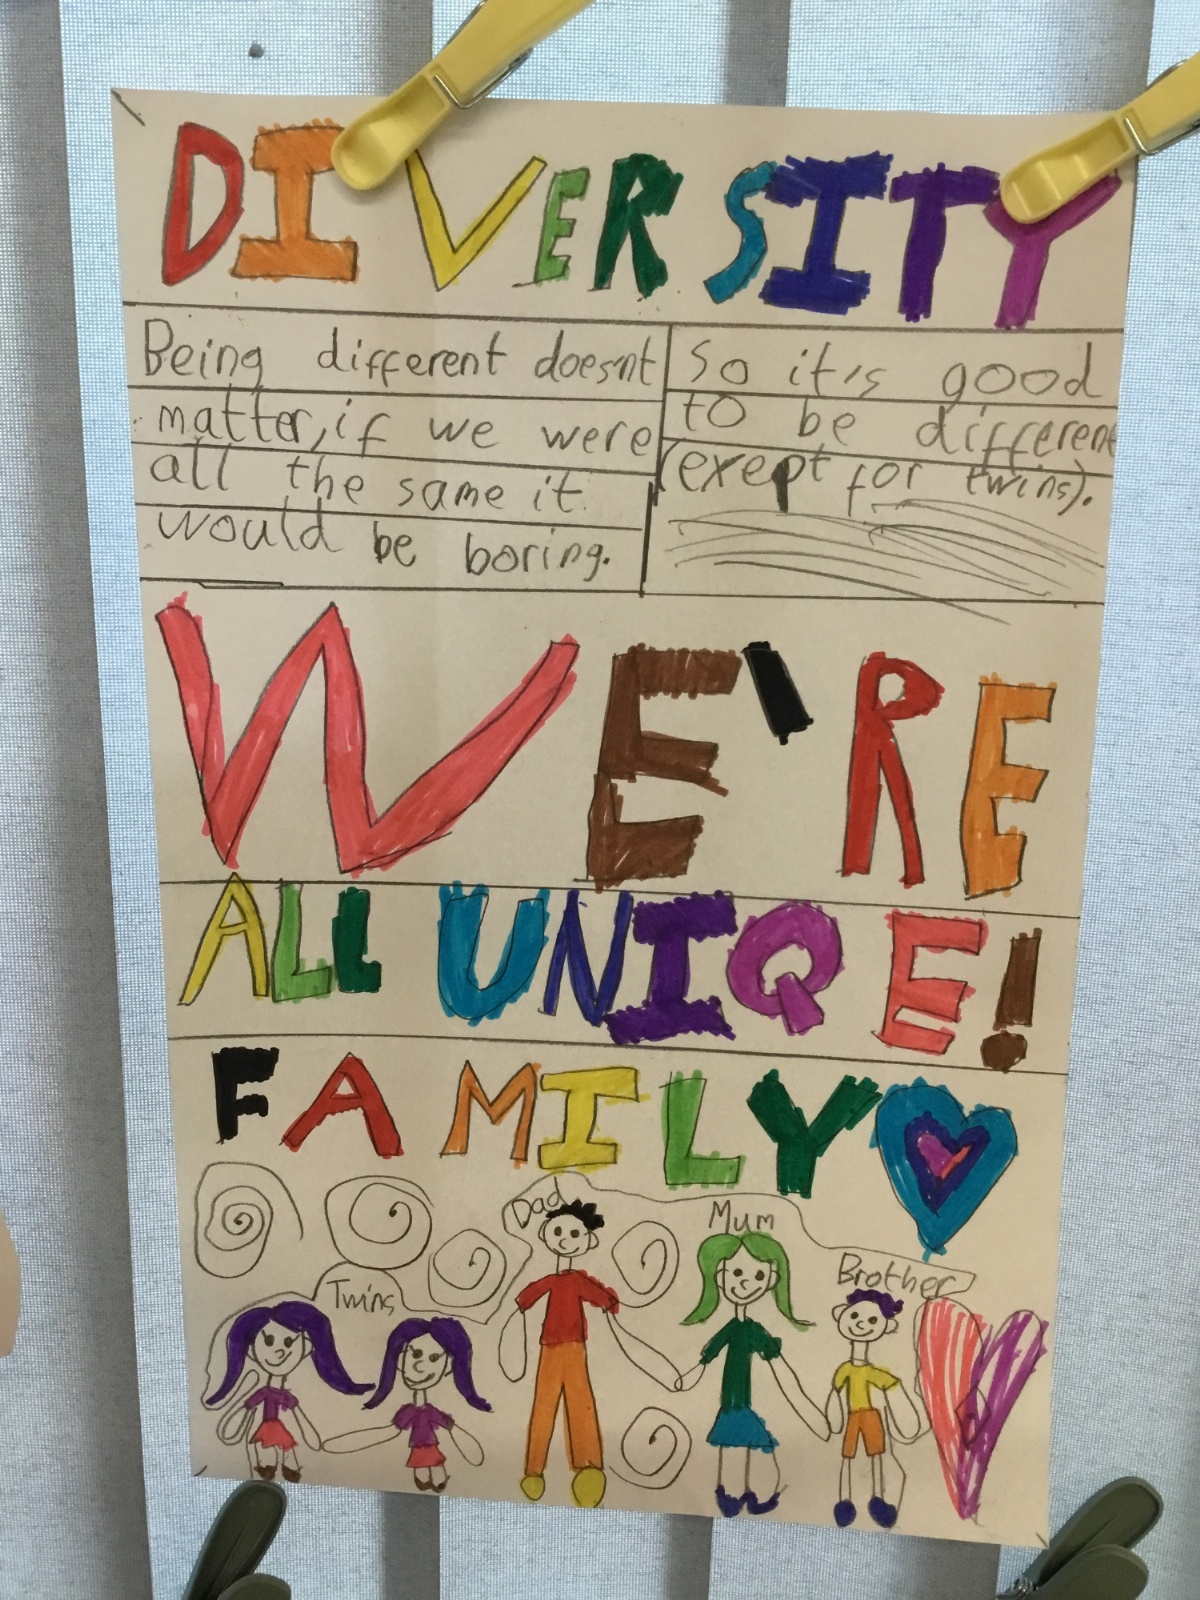 DIVERSITY
Being different doesn't
matter, if we were
all the same it
would be boring.
So it's good
to be different
(exept for twins).
WE'RE
ALL UNIQE!
FAMILY
Dad
Mum
Brother
Twins